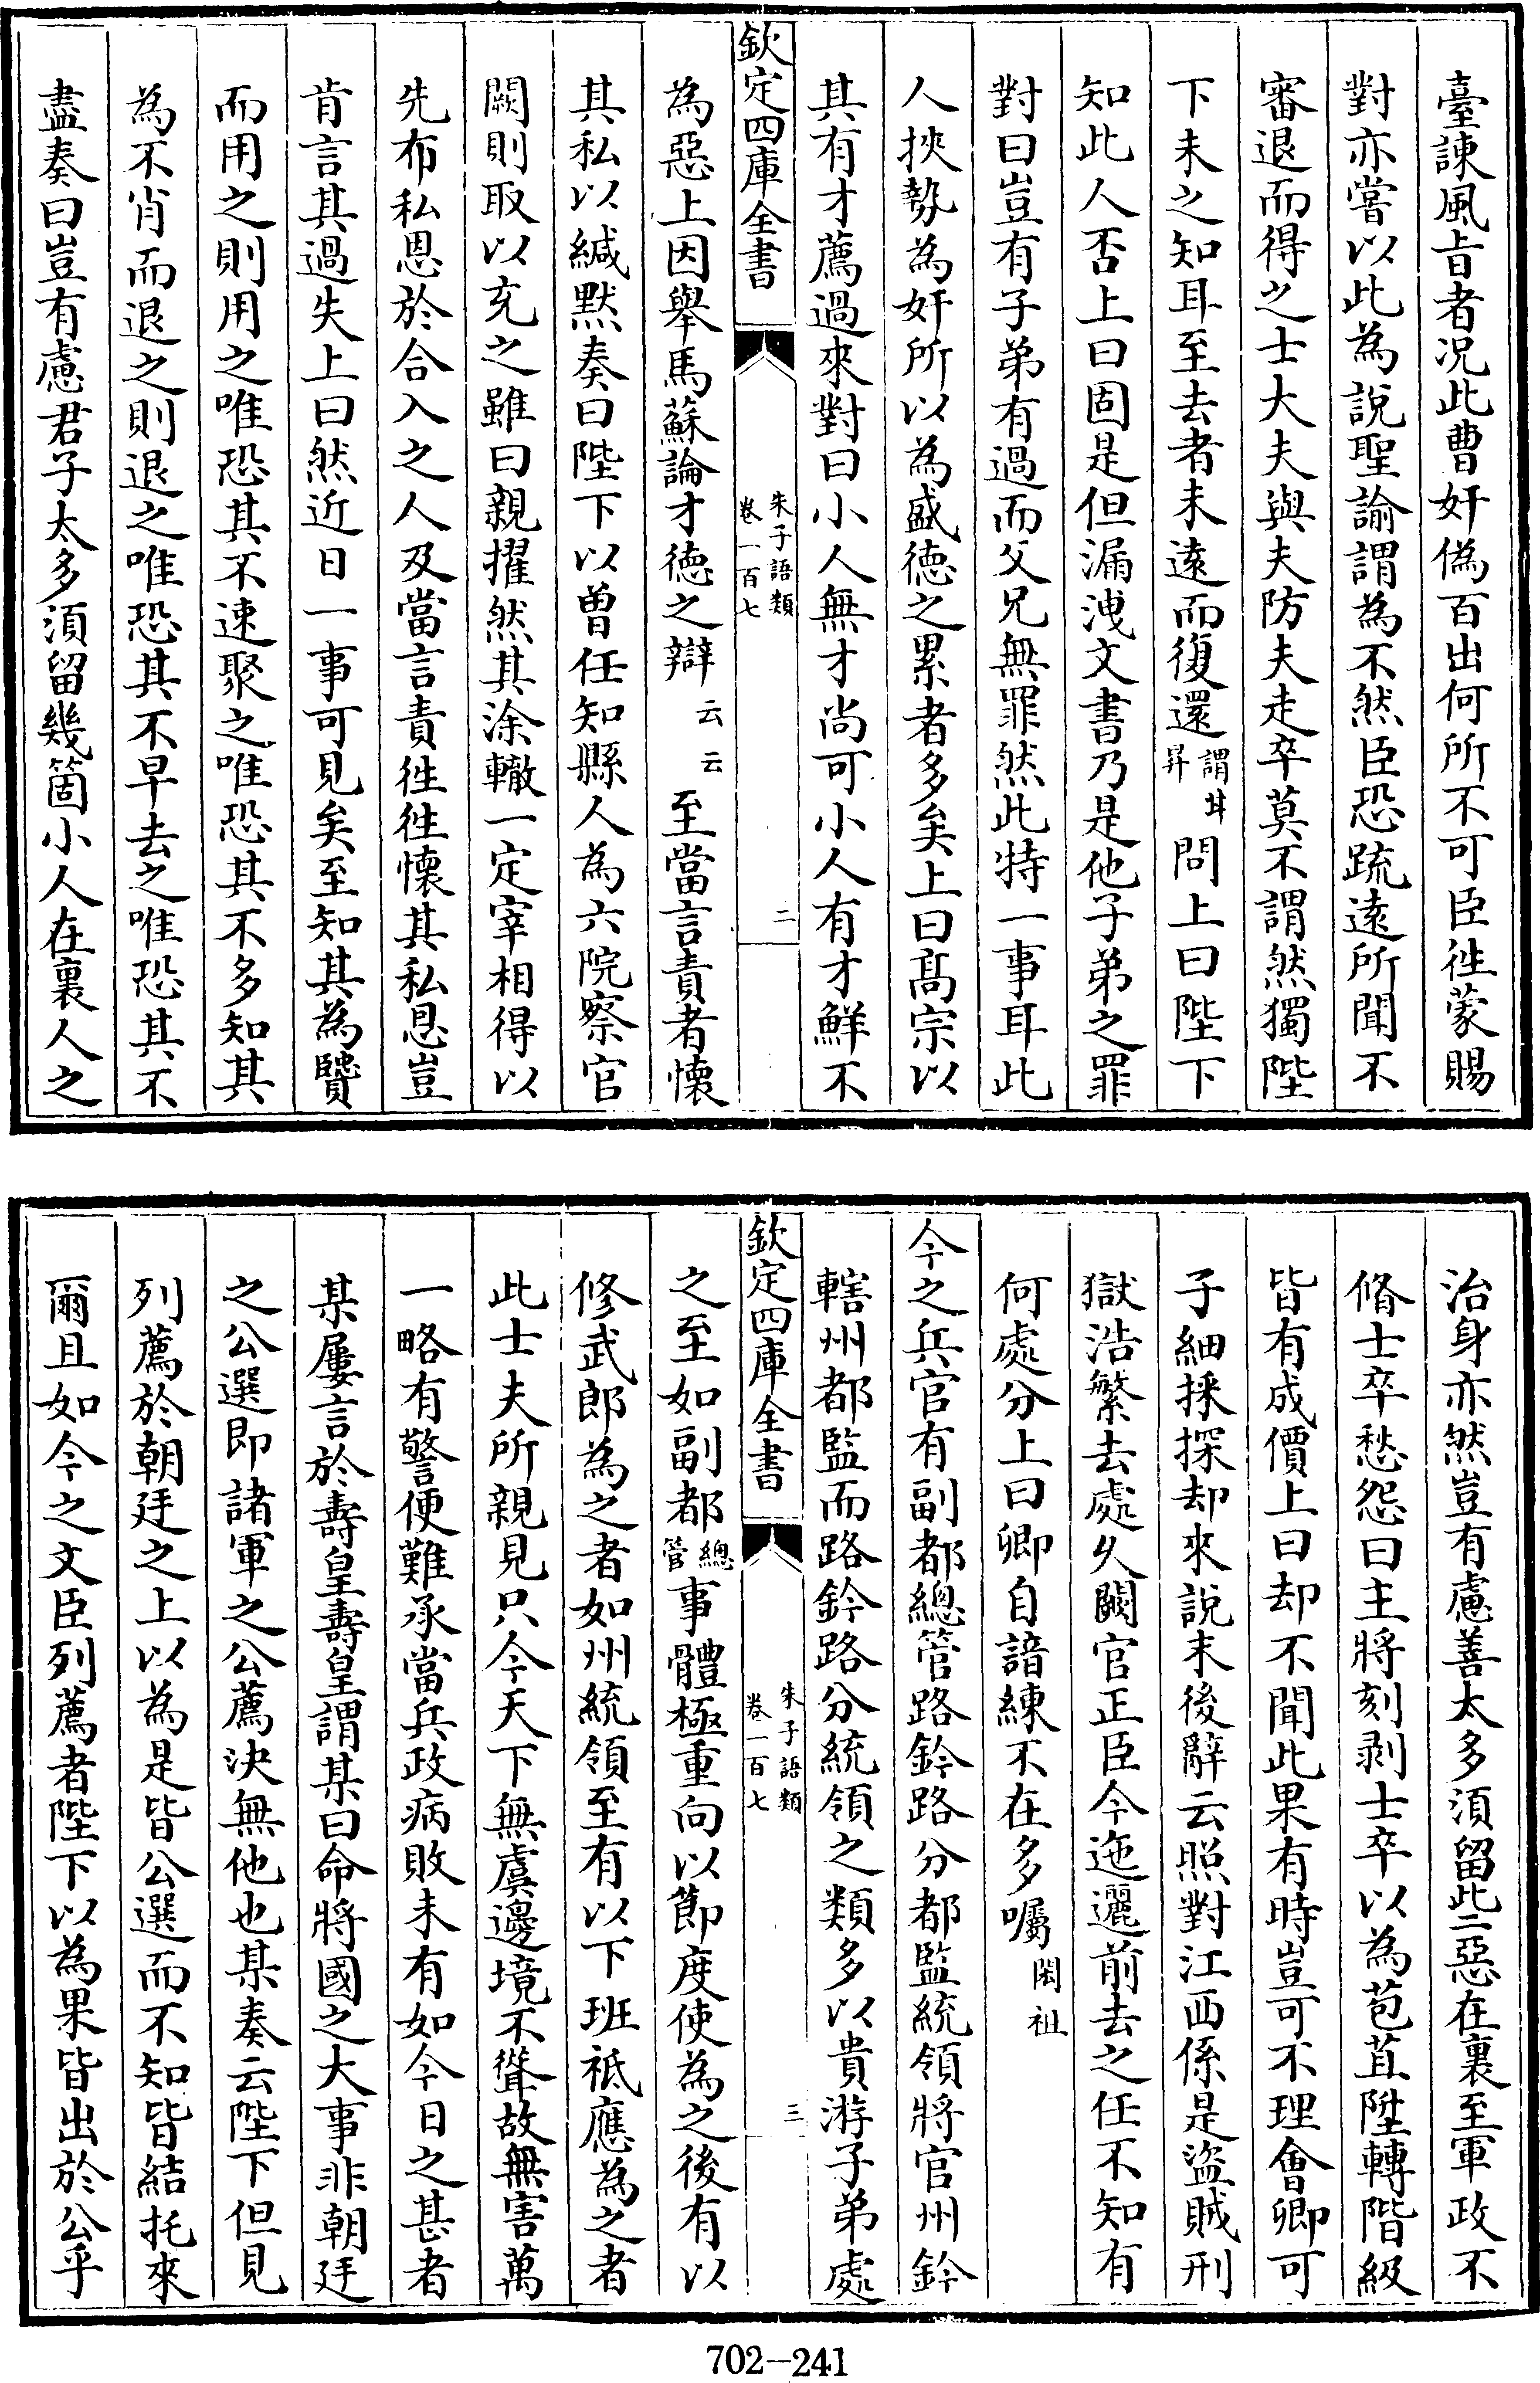 臺諫風㫖者况此曹奸偽百出何所不可臣徃蒙賜
對亦嘗以此為說聖諭謂為不然臣恐疏逺所聞不
審退而得之士大夫與夫防夫走卒莫不謂然獨陛
下未之知耳至去者未逺而復還謂甘昇問上曰陛下
知此人否上曰固是但漏洩文書乃是他子弟之罪
對曰豈有子弟有過而父兄無罪然此特一事耳此
人挾勢為奸所以為盛徳之累者多矣上曰髙宗以
其有才薦過來對曰小人無才尚可小人有才鮮不
欽定四庫全書
朱子語類
卷一百七
二
為惡上因舉馬蘇論才徳之辯云云至當言責者懐
其私以緘黙奏曰陛下以曽任知縣人為六院察官
闕則取以充之雖曰親擢然其涂轍一定宰相得以
先布私恩於合入之人及當言責徃徃懐其私恩豈
肯言其過失上曰然近日一事可見矣至知其為賢
而用之則用之唯恐其不速聚之唯恐其不多知其
為不肖而退之則退之唯恐其不早去之唯恐其不
盡奏曰豈有慮君子太多須留幾箇小人在裏人之
治身亦然豈有慮善太多須留此二惡在裏至軍政不
脩士卒愁怨曰主將刻剥士卒以為苞苴陞轉階級
皆有成價上曰却不聞此果有時豈可不理㑹卿可
子細採探却來說末後辭云照對江西係是盜賊刑
獄浩繁去處久闕官正臣今迤邐前去之任不知有
何處分上曰卿自諳練不在多囑閎祖
今之兵官有副都總管路鈐路分都監統領將官州鈐
轄州都監而路鈐路分統領之類多以貴游子弟處
欽定四庫全書
朱子語類
卷一百七
三
之至如副都總管事體極重向以節度使為之後有以
修武郎為之者如州統領至有以下班祗應為之者
此士夫所親見只今天下無虞邊境不聳故無害萬
一略有警便難承當兵政病敗未有如今日之甚者
某屢言於壽皇壽皇謂某曰命將國之大事非朝廷
之公選即諸軍之公薦決無他也某奏云陛下但見
列薦於朝廷之上以為是皆公選而不知皆結托來
爾且如今之文臣列薦者陛下以為果皆出於公乎
702-241